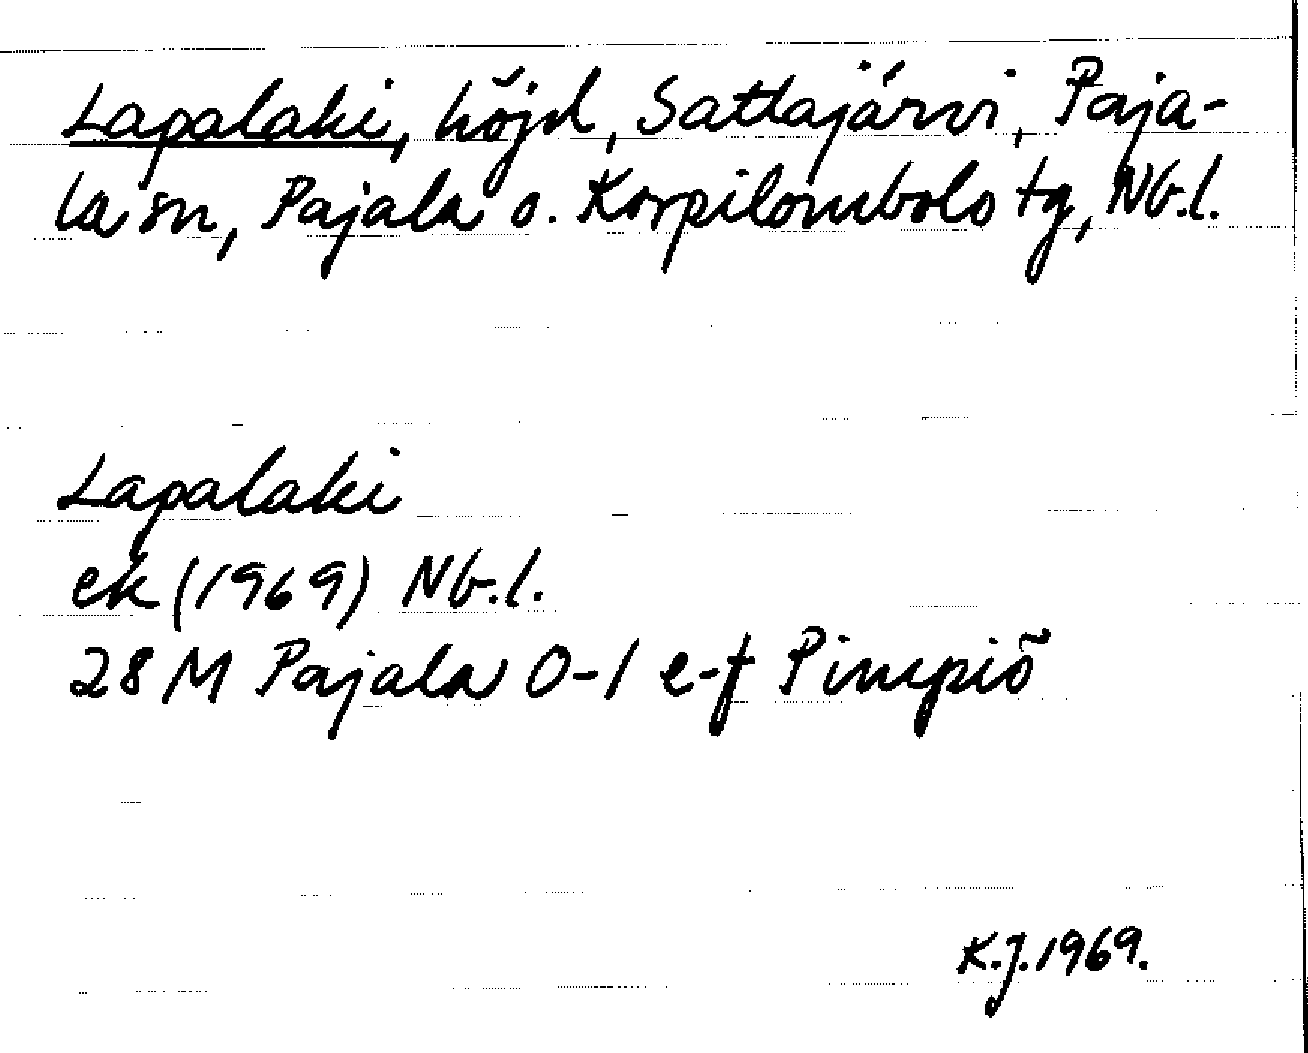 Lapalaki, höjd, Sattajärvi, Paja-
la sn, Pajala o. Korpilombolo tg, Nb.l.
Lapalaki
ek (1969) Nb.l.
28 M Pajala 0-1 e-f Pimpiö
K.J. 1969.